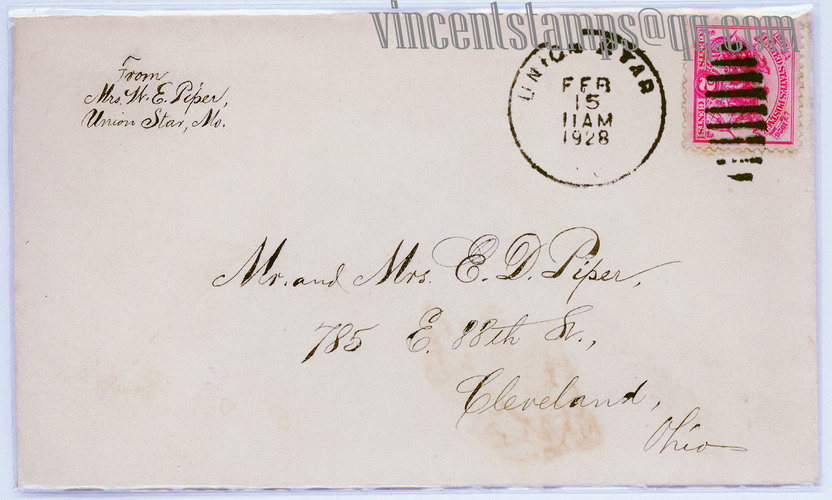 vincentstamps@qq.com
From
Mrs. W. E. Piper,
Union Star, Mo.
UNION STAR
FEB
15
11AM
1928
CENTS 2 CENTS
Mr. and Mrs. E. D. Piper,
785 E. 88th St.,
Cleveland,
Ohio